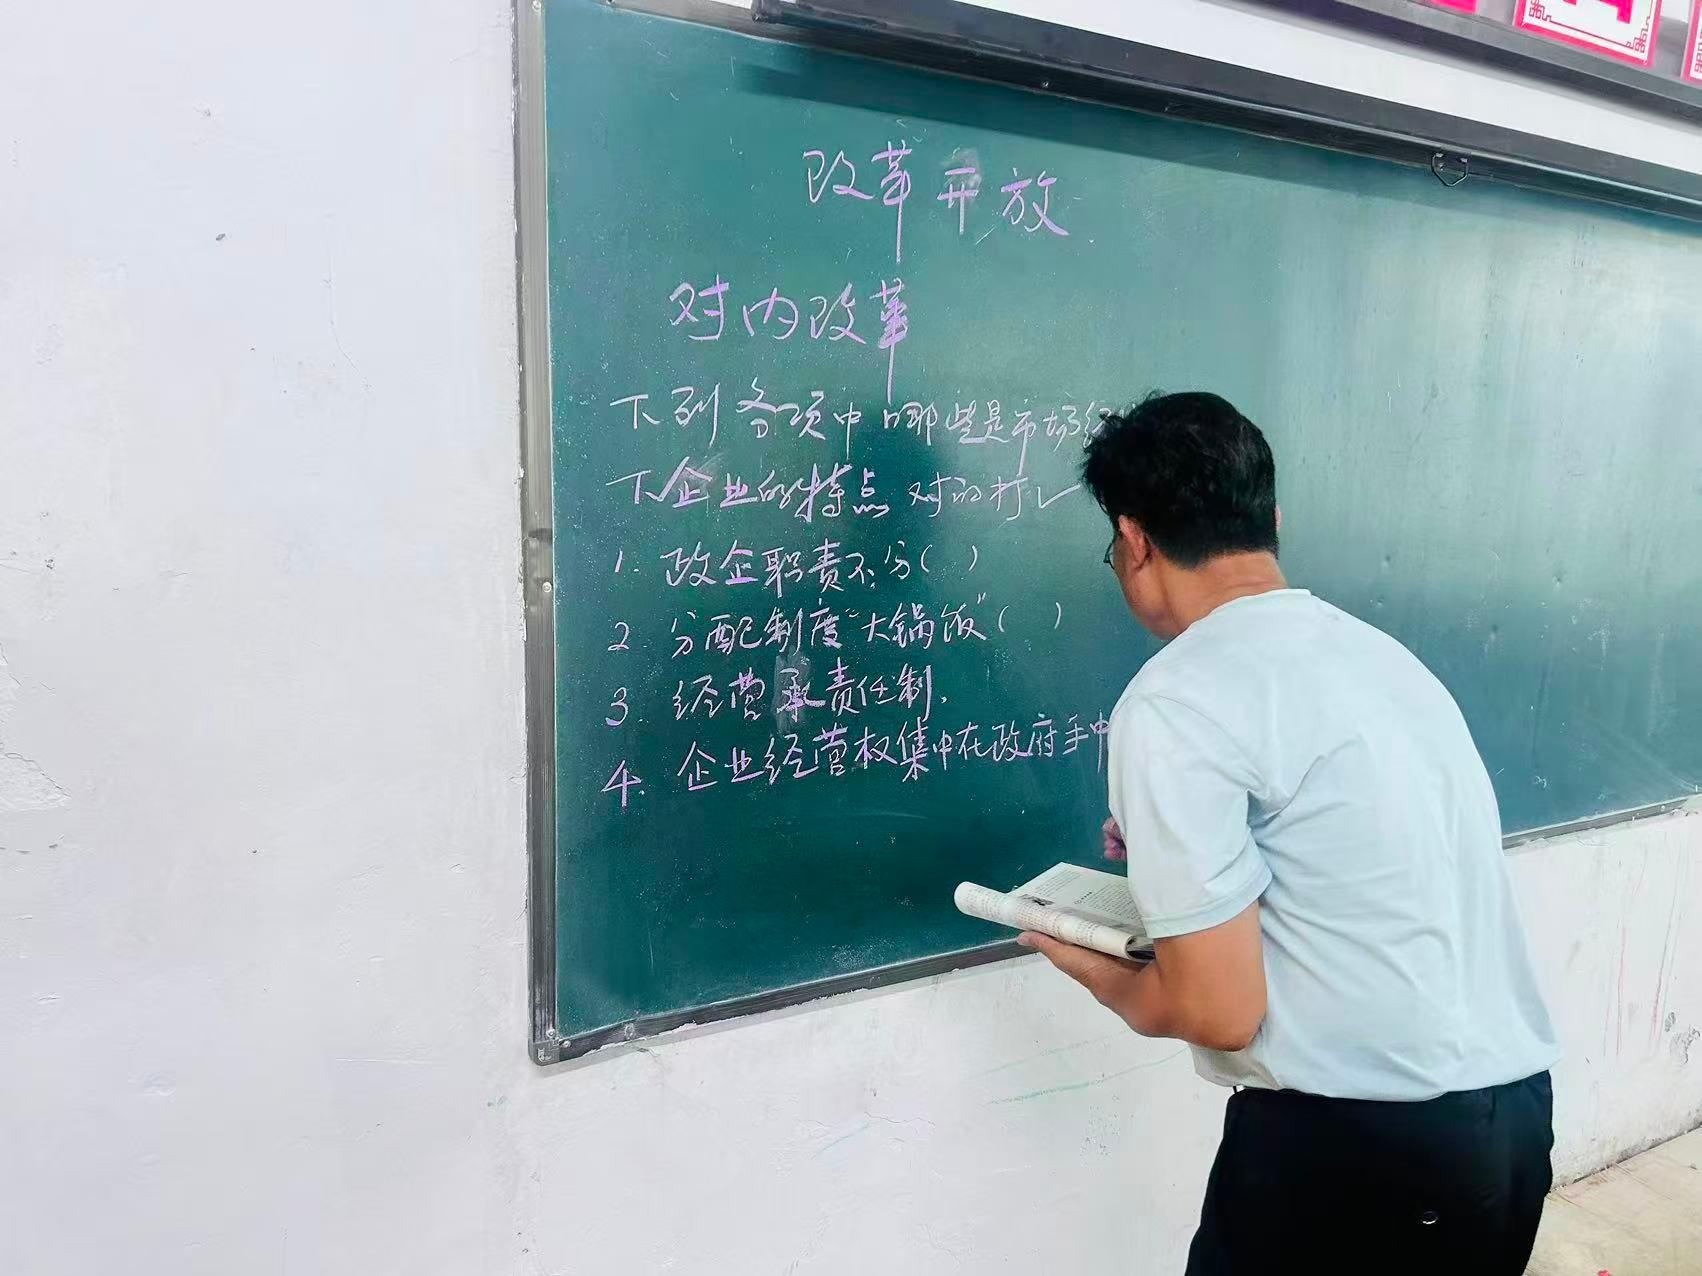 改革开放
对内改革
下列各项中哪些是市场经
下企业的特点 对的打✓
1. 政企职责不分( )
2. 分配制度"大锅饭"( )
3. 经营承责任制.
4. 企业经营权集中在政府手中